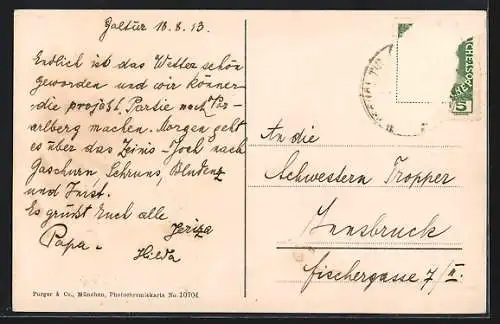 Galtür 18.8.13.
Endlich ist das Wetter schön
geworden und wir können
die projekt. Partie nach Vor-
arlberg machen. Morgen geht
es über das Zeinis-Joch nach
Gaschurn, Schruns, Bludenz
und Imst.
Es grüßt Euch alle
Papa - Hilda
An die
Schwestern Tropper
Innsbruck
Fischergasse 7/II.
Purger & Co., München, Photochromiekarte No. 10704
5